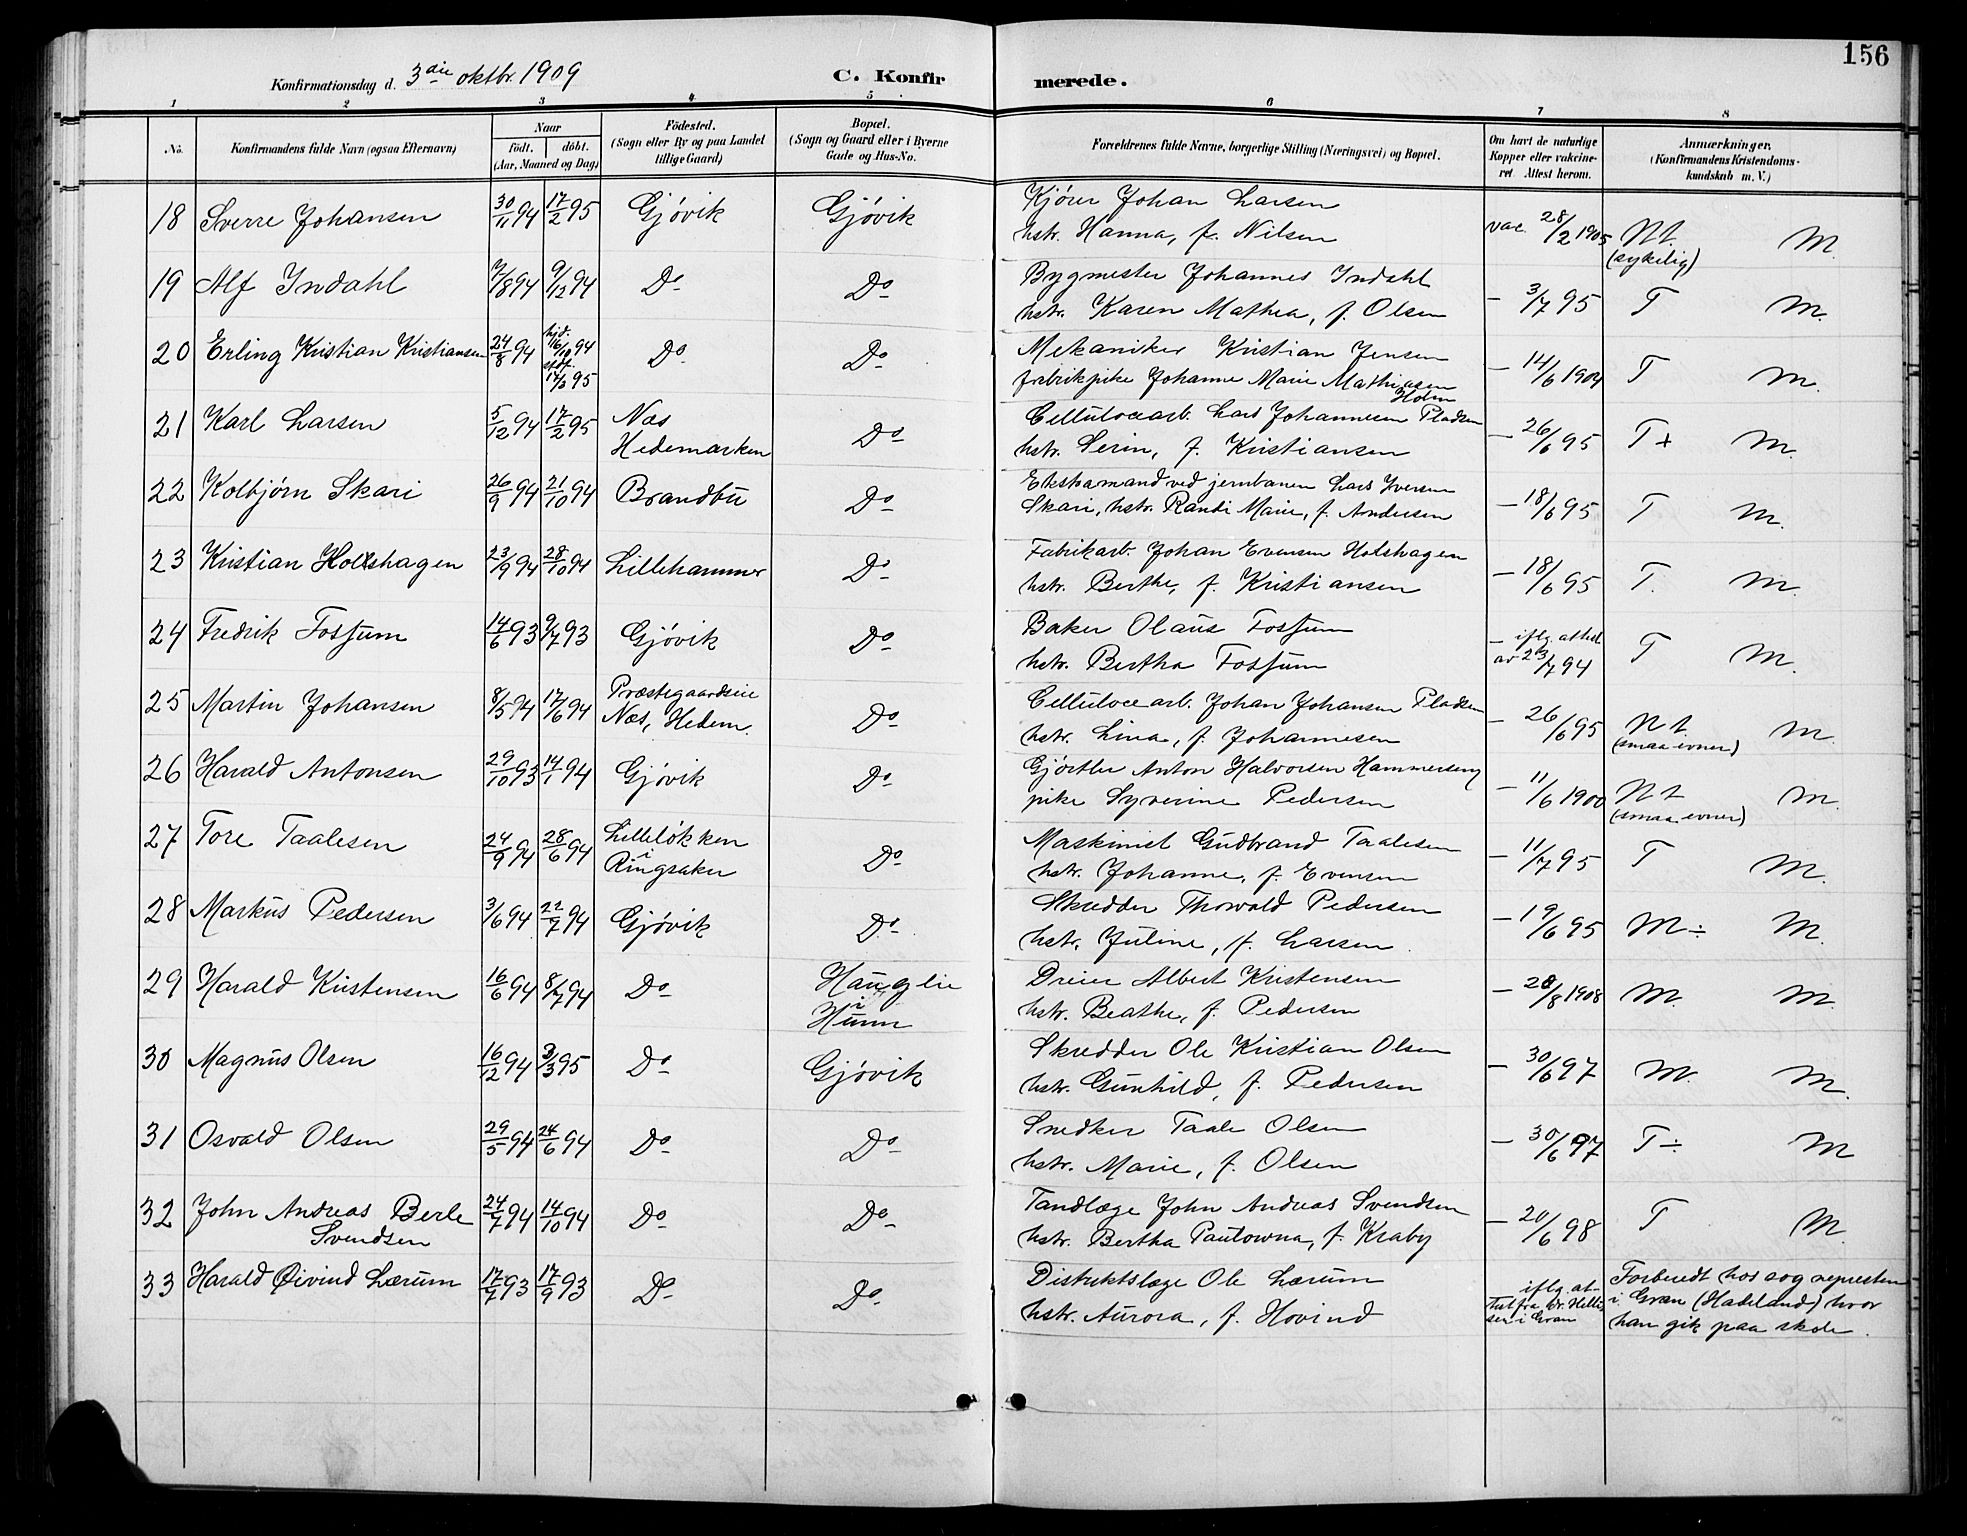 156
Konfirmationsdag d. 3die oktbr. 1909 C. Konfirmerede.
1 2 3 4 5 6 7 8
No. Konfirmandens fulde Navn (ogsaa Efternavn) Naar födt. döbt. (Aar, Maaned og Dag) Födested. (Sogn eller By og paa Landet tillige Gaard) Bopæl. (Sogn og Gaard eller i Byerne Gade og Hus-No. Forældrenes fulde Navne, borgerlige Stilling (Næringsvei) og Bopæl. Om havt de naturlige Kopper eller vakcineret. Attest herom. Anmærkninger. (Konfirmandens Kristendomskundskab m. V.)
18 Sverre Johansen 30/11 94 17/2 95 Gjøvik Gjøvik Kjører Johan Larsen
hstr. Hanna, f. Nilsen vac. 28/2 1905 Nt. (sykelig) M.
19 Alf Indahl 7/8 94 9/12 94 Do Do Bygmester Johannes Indahl
hstr. Karen Mathea, f. Olsen - 3/7 95 T M.
20 Erling Kristian Kristiansen 24/8 94 hjd. 16/10 94 stdf. 17/2 95 Do Do Mekaniker Kristian Jensen
fabrikpike Johanne Marie Mathiasen Holm - 14/6 1904 T M.
21 Karl Larsen 5/12 94 17/2 95 Næs Hedemarken Do Cellulocearb. Lars Johannesen Pladsen
hstr. Serin, f. Kristiansen - 26/6 95 T+ M.
22 Kolbjørn Skari 26/9 94 21/10 94 Brandbu Do Ekstramand ved jernbanen Lars Iversen
Skari, hstr. Randi Marie, f. Andersen - 18/6 95 T M.
23 Kristian Holshagen 23/9 94 28/10 94 Lillehammer Do Fabrikarb. Johan Evensen Holshagen
hstr. Berthe, f. Kristiansen - 18/6 95 T. M.
24 Fredrik Fossum 14/6 93 9/7 93 Gjøvik Do Baker Olaus Fossum
hstr. Bertha Fossum - iflg. attest av 23/7 94 T M.
25 Martin Johansen 8/5 94 17/6 94 Præstegaardseie Næs, Hedem. Do Cellulocearb. Johan Johansen Pladsen
hstr. Lina, f. Johannesen - 26/6 95 Nt (smaa evner) M.
26 Harald Antonsen 29/10 93 14/1 94 Gjøvik Do Gjørtler Anton Halvorsen Hammerseng
pike Syverine Pedersen - 11/6 1900 Nt (smaa evner) M.
27 Tore Taalesen 24/9 94 28/6 94 Lilleløkken i Ringsaker Do Maskinist Gudbrand Taalesen
hstr. Johanne, f. Evensen - 11/7 95 T M.
28 Markus Pedersen 3/6 94 22/7 94 Gjøvik Do Skredder Thorvald Pedersen
hstr. Juline, f. Larsen - 19/6 95 M÷ M.
29 Harald Kristensen 16/6 94 8/7 94 Do Hauglie i Hunn Dreier Albert Kristensen
hstr. Beathe, f. Pedersen - 28/8 1908 M. M.
30 Magnus Olsen 16/12 94 3/3 95 Do Gjøvik Skredder Ole Kristian Olsen
hstr. Gunhild, f. Pedersen - 30/6 97 M. M.
31 Osvald Olsen 29/5 94 24/6 94 Do Do Snedker Taale Olsen
hstr. Marie, f. Olsen - 30/6 97 T÷ M
32 John Andreas Berle Svendsen 24/7 94 14/10 94 Do Do Tandlæge John Andreas Svendsen
hstr. Bertha Paulowna, f. Kraby - 20/6 98 T M.
33 Harald Øivind Lærum 17/7 93 17/9 93 Do Do Distriktslæge Ole Lærum
hstr. Aurora, f. Hovind iflg. attest fra Dr. Hellesen i Gran Forberedt hos sognepresten
i Gran (Hadeland) hvor
han gik paa skole.